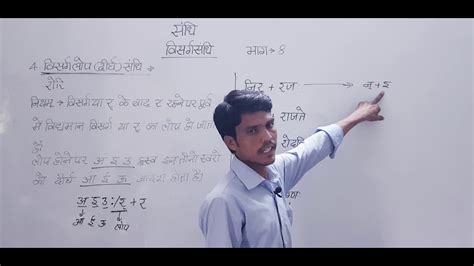 संधि
विसर्गसंधि भाग → 8
4. विसर्ग लोप (दीर्घ) संधि →
रोरि
नियम → विसर्ग या र् के बाद र रहने पर पूर्व
में विद्यमान विसर्ग या र् का लोप हो जाता
है
लोप होने पर अ इ उ ह्रस्व इन तीनो स्वरो
को दीर्घ आ ई ऊ आदेश होता है।
अ इ उ :/र् + र
आ ई ऊ लोप
निर् + रज → न + इ
राजते